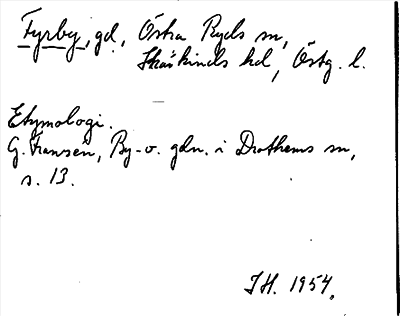 Fyrby, gd, Östra Ryds sn,
Skärkinds hd, Östg. l.
Etymologi.
G. Franzén, By- o. gdn. i Drothems sn,
s. 13.
IH. 1954.